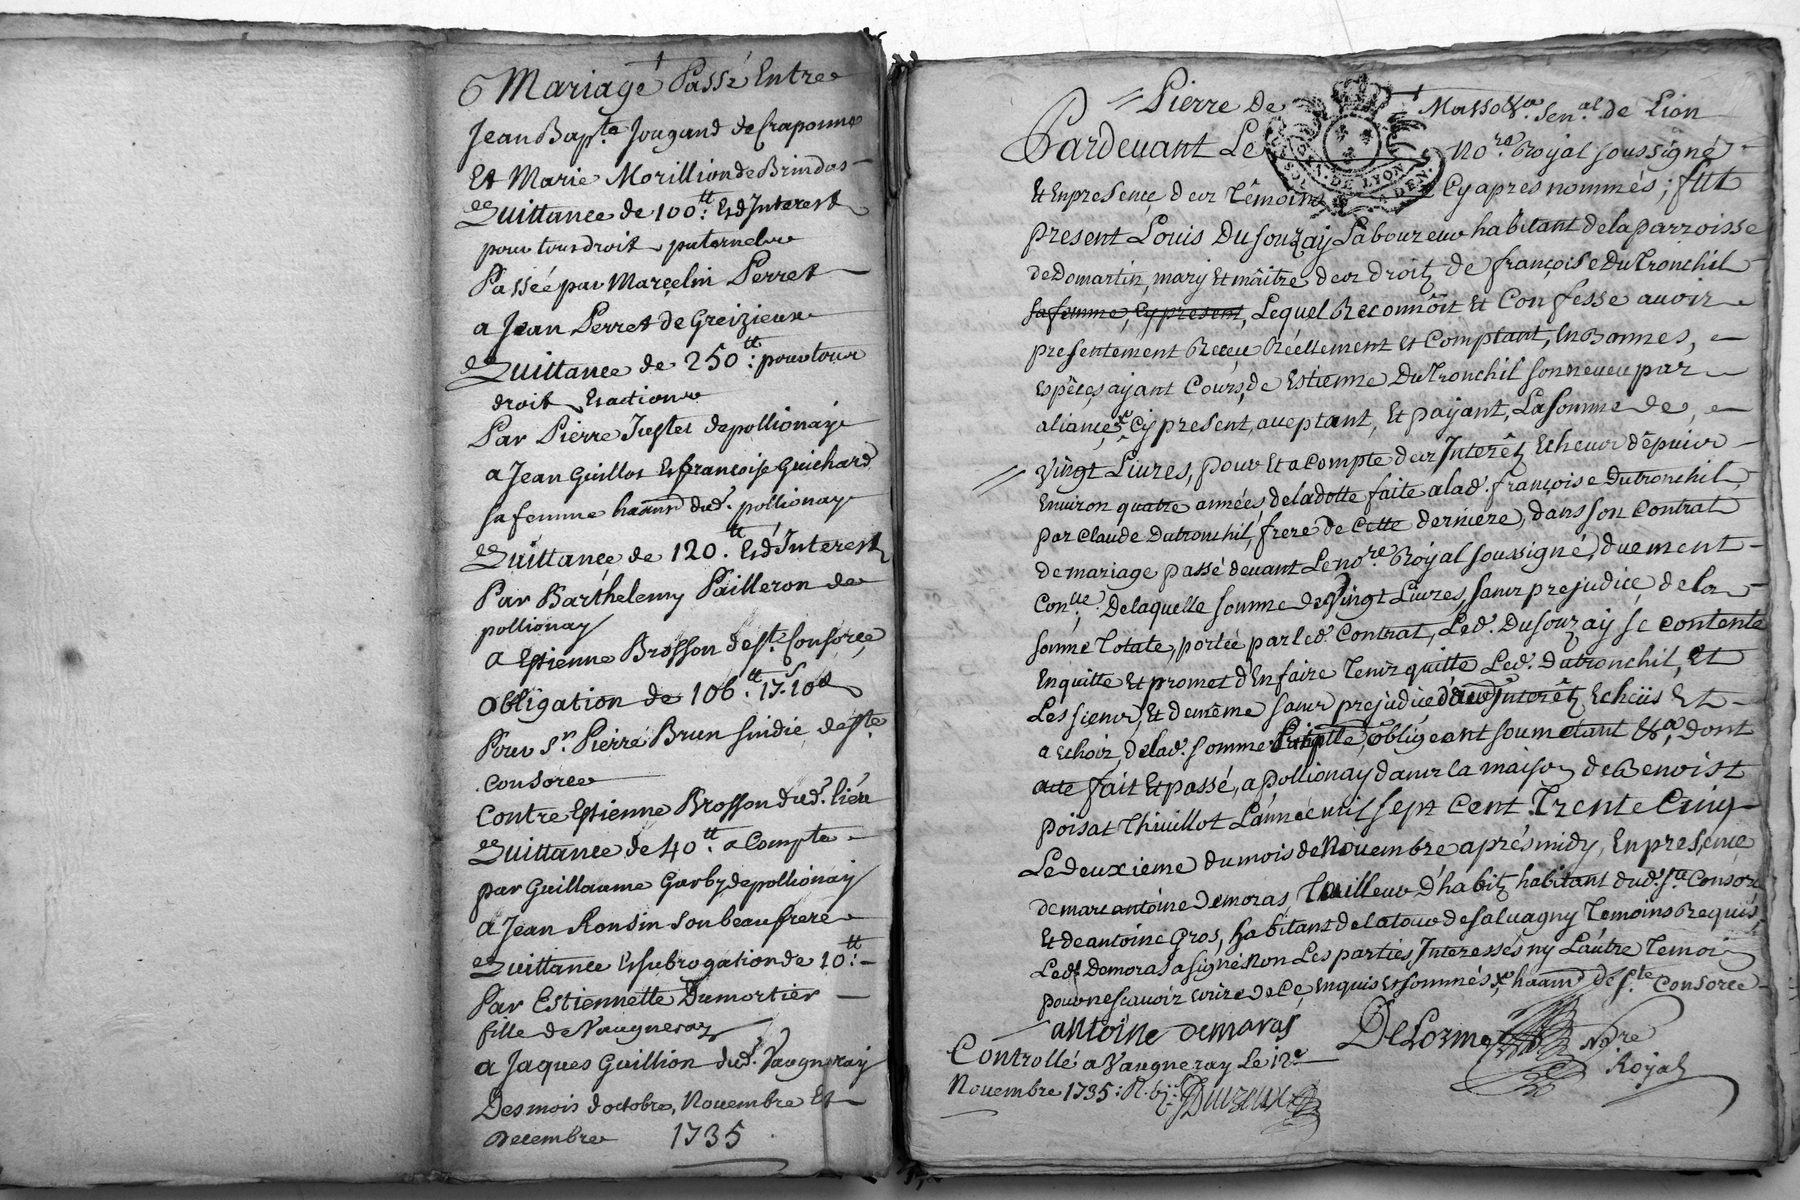 6 Mariage Passé Entre
Jean Bap.te Jougand de Craponne
Et Marie Morillion de Brindas
Quittance de 100tt: Et d'Interest
pour tous droit paternels
Passée par Marçelin Perret
a Jean Perret de Greizieux
Quittance de 250tt: pour tous
droit Et actions
Par Pierre Juttet de pollionay
a Jean Guillot Et françoise Guichard
sa femme habitant dud. pollionay
Quittance de 120tt. Et d'Interest
Par Barthelemy Pailleron de
pollionay
a Estienne Brosson de ste Consorçe
obligation de 106tt. 17s. 10d
Pour Sr Pierre Brun sindic de ste
Consorce
Contre Estienne Brosson dud. lieu
Quittance de 40tt. a Compte
par Guillaume Garby de pollionay
a Jean Ronsin son beaufrere
Quittance Et subrogation de 10tt:
Par Estiennette Dumortier
fille de Vaugneray
a Jaques Guillion dud. Vaugneray
Des mois d'octobre, Novembre Et
Decembre 1735
Pierre de Masso &a Sen.al de Lion
Pardevant Le No.re Royal soussigné
GEN. DE LYON
Et En presençe des Têmoins Cy apres nommés; fut
present Louis Dusouzay Laboureur habitant de la parroisse
de Domartin, mary Et maître des droitz de françoise Dutronchil
sa femme, Cy present, Lequel Reconnôit Et Confesse avoir
presentement Reçeu Réellement Et Comptant, En Bonnes,
Espêçes ayant Cours, de Estienne Dutronchil son neveu par
aliançe, Cy present, aceptant, Et payant, La somme de
Vingt Livres, pour Et a Compte des Interêtz Echeus dêpuis
Environ quatre années de la dotte faite a lad. françoise Dutronchil,
par Claude Dutronchil, frere de Cette derniere, dans son Contrat
de mariage passé devant Le no.re Royal soussigné, duement
Con.lle. De laquelle somme de Vingt Livres, sans prejudice de la
somme Totale, portée par led. Contrat, Led. Dusouzay se contente
En quitte Et promet d'En faire Tenir quitte Led. Dutronchil, Et
Les siens, Et de même sans prejudice Interêtz Echeüs Et
a Echoir, de lad. somme obligeant soumetant &a, dont
acte fait Et passé, a pollionay dans la maison de Benoist
poisat Thivillot L'année mil sept Cent Trente Cinq
Le deuxieme du mois de Novembre aprés midy, En presençe
de marc antoine Demoras Tailleur d'habitz habitant dud. ste Consorce
Et de antoine Gros, habitant de la tour de salvagny Temoins Requis
Led. Demoras a signé Non Les parties Interessés ny L'autre Temoin
pour ne sçavoir Ecrire de Ce Enquis Et sommés, x habitant de ste Consorce
antoine demoras
DeLorme
No.re
Royal
Controllé a Vaugneray Le 12e
Novembre 1735: